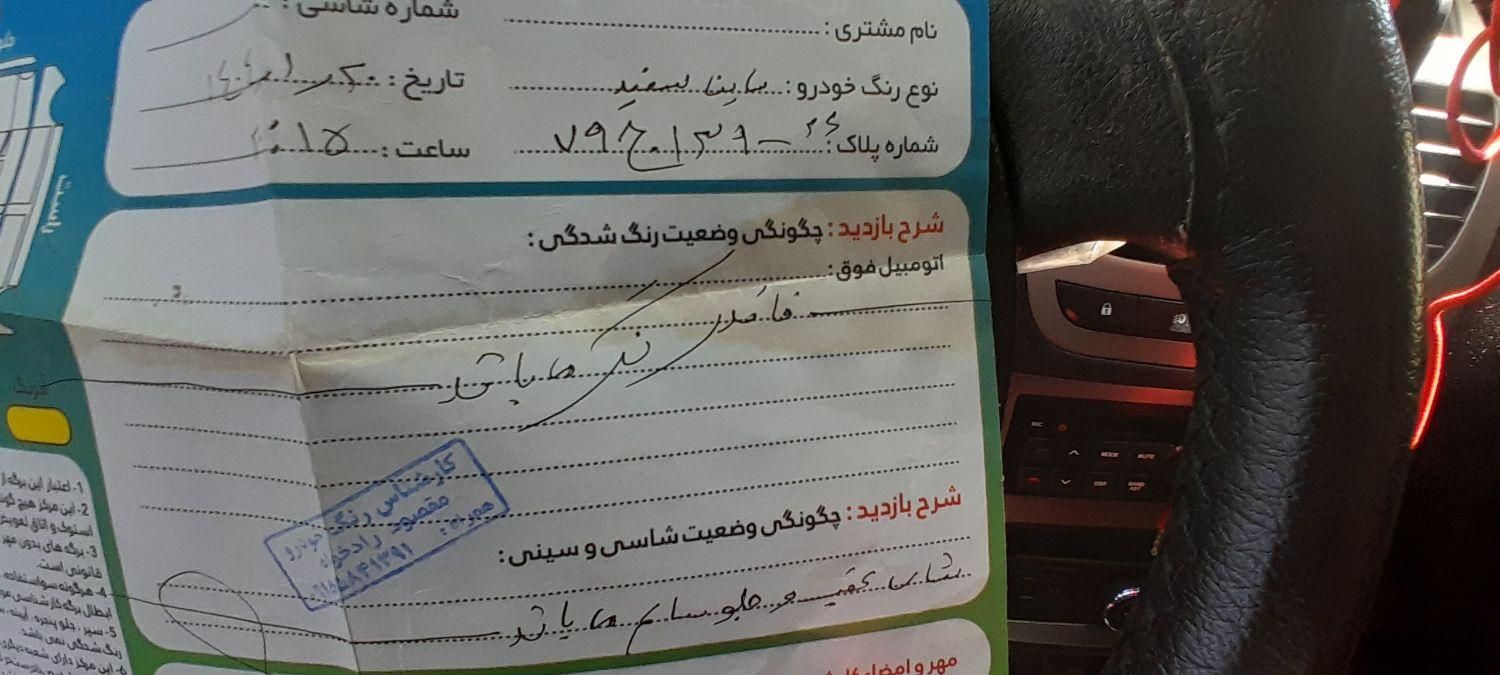 نام مشتری :
شماره شاسی :
نوع رنگ خودرو : ساینا سفید
تاریخ :
شماره پلاک :
ساعت : ۱۵
شرح بازدید : چگونگی وضعیت رنگ شدگی :
اتومبیل فوق :
فاقد رنگ می باشد
کارشناس رنگ خودرو
مقصود رادخواه
همراه :
شرح بازدید : چگونگی وضعیت شاسی و سینی :
شاسی عقب و جلو سالم می باشد
مهر و امضاء
راست
1- اعتبار این برگه از
2- این مرکز هیچ گونه
استوک و اتاق تعویض
3- برگه های بدون مهر
قانونی است.
4- هرگونه سواستفاده
ابطال برگه کارشناسی
5- سپر ، جلو پنجره ، آیینه ،
رنگ شدگی نمی باشد.
6- این مرکز دارای شعبه دیگری
MIC
MODE
MUTE
DISP
BAND
AST